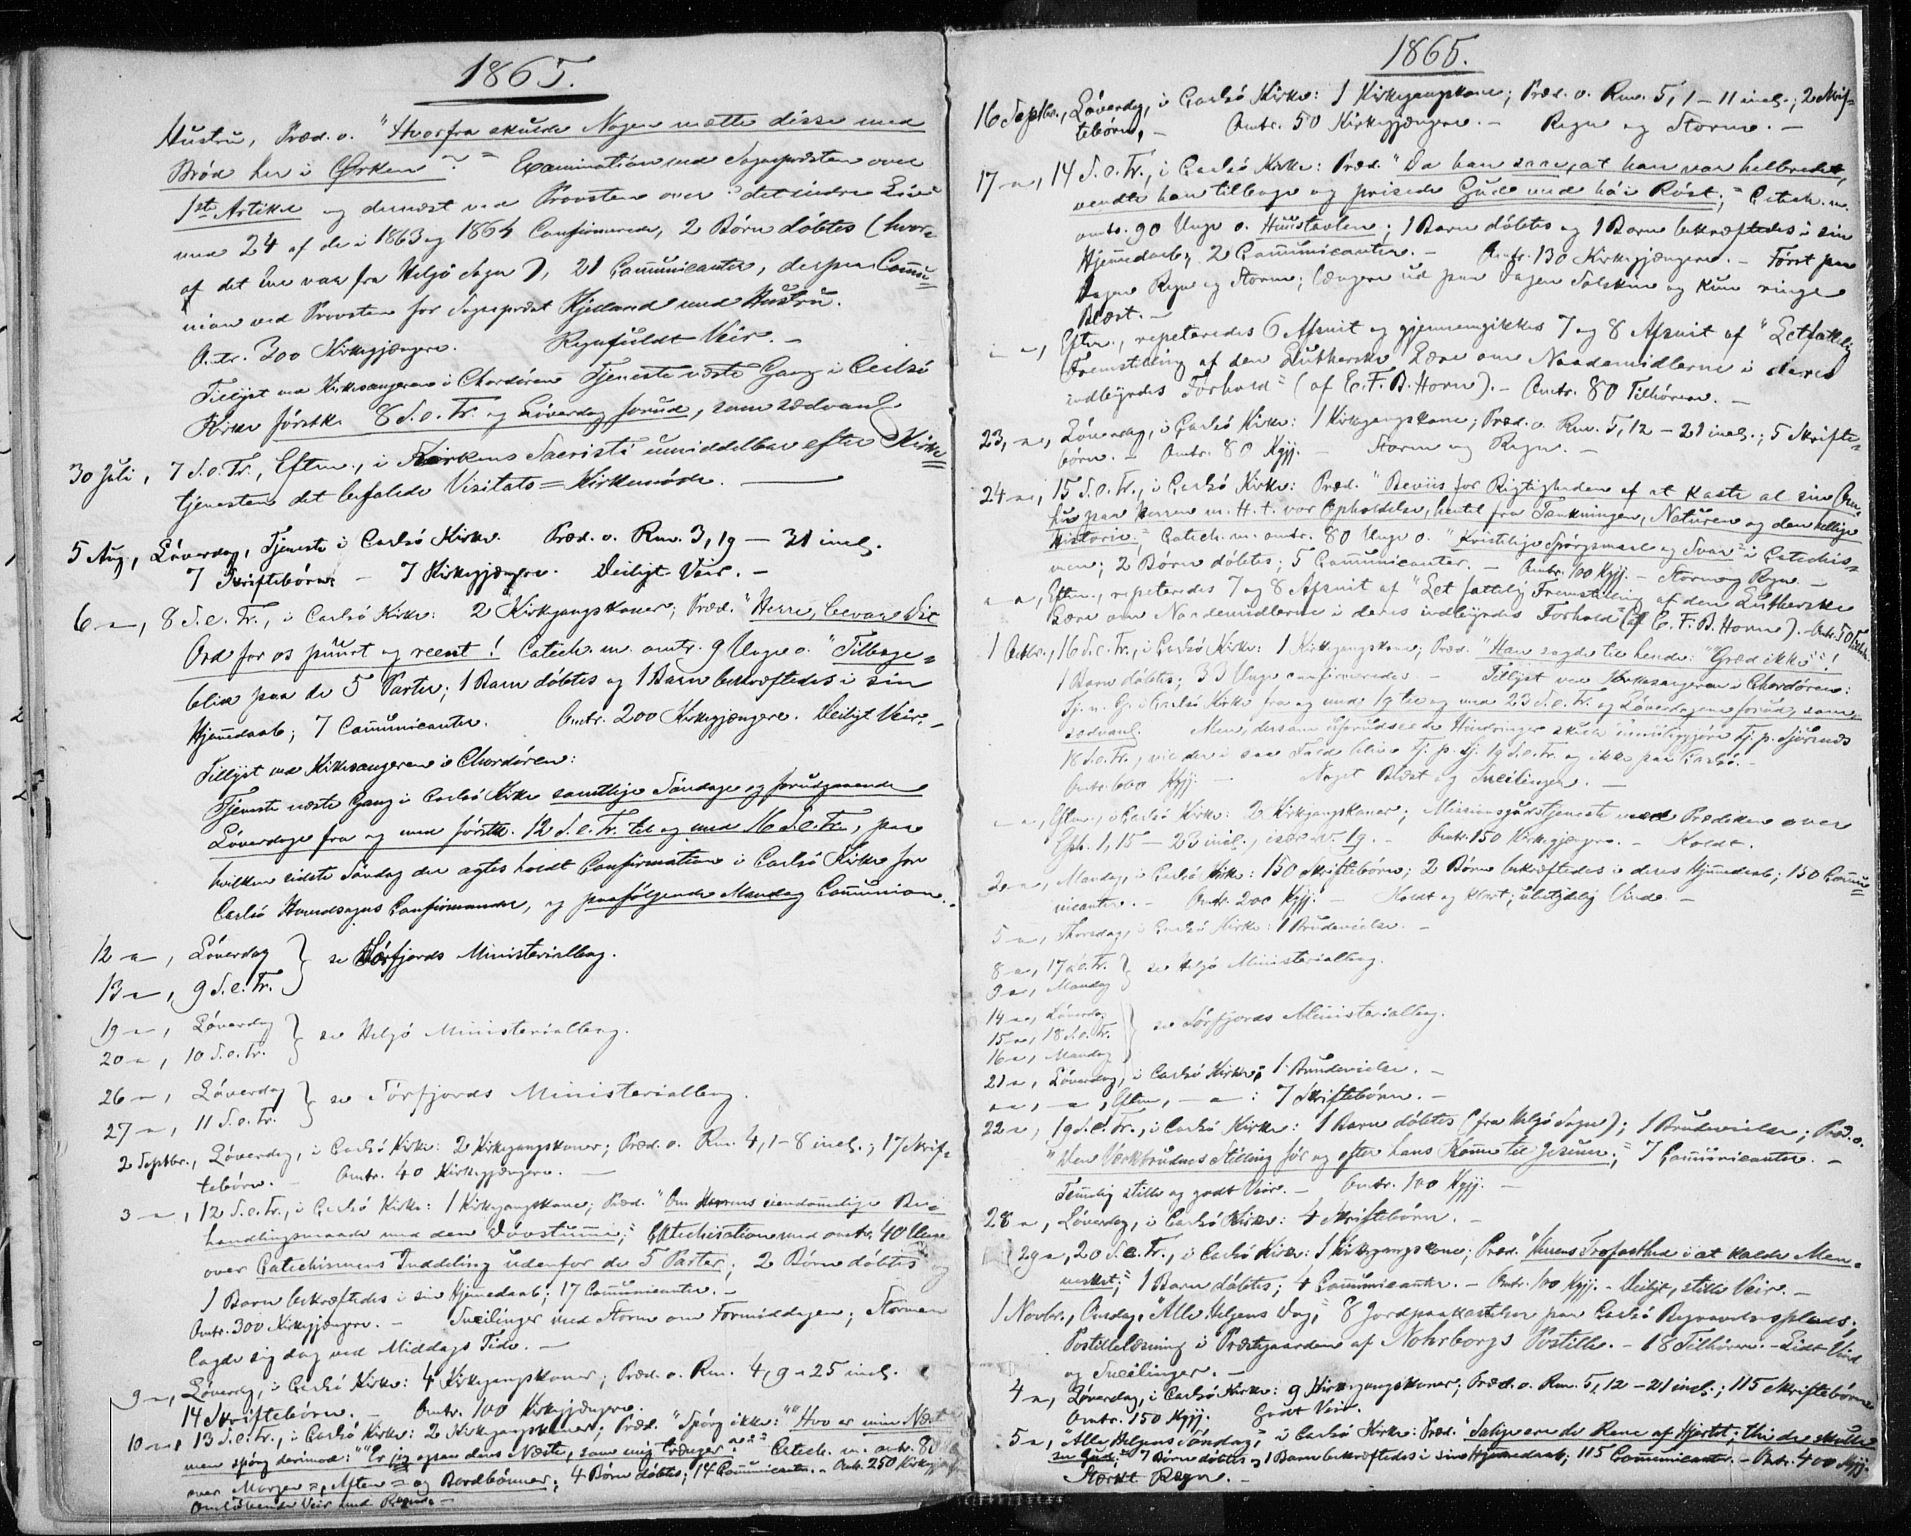 1865.
Hustru, Præd. o. "Hvorfra skulde Nogen mætte disse med
Brød her i Ørken?" Examination ved Sognepræsten over
1ste Artikel og dernæst ved Provsten over det indre Liv
med 24 af de i 1863 og 1864 Confirmerede, 2 Børn døbtes (hvor-
af det Ene var fra Helgø Sogn), 21 Communicanter, derpaa Commu-
nion ved Provsten for Sognepræst Hjelland med Hustru.
Omtr. 300 Kirkegjængere. Regnfuldt Veir. -
Tillyst ved Kirkesangeren i Chordøren Tjeneste næste Gang i Carlsø
Kirke førstk. 8 S. e. Tr. og Løverdag forud, som sædvanl.
30 Juli, 7 S. e. Tr., Eftm., i Kirkens Sacristi umiddelbar efter Kirke-
tjenesten det befalede Visitats-Kirkemøde.
5 Aug, Løverdag, Tjeneste i Carlsø Kirke. Præd. o. Rm. 3, 19 - 31 incl.
7 Skriftebørn. - 7 Kirkegjængere. Deiligt Veir. -
6 -, 8 S. e. Tr., i Carlsø Kirke: 2 Kirkegangskoner; Præd. "Herre, bevar Dit
Ord for os puurt og reent! Catech. m. omtr. 9 Unge o. "Tilbage-
blik paa de 5 Parter; 1 Barn døbtes og 1 Barn bekræftedes i sin
Hjemmedaab; 7 Communicanter. Omtr. 200 Kirkegjængere. Deiligt Veir. -
Tillyst ved Kirkesangeren i Chordøren:
Tjeneste næste Gang i Carlsø Kirke samtlige Søndage og forudgaaende
Løverdage fra og med førstk. 12 S. e. Tr. til og med 16 S. e. Tr., paa
hvilken sidste Søndag der agtes holdt Confirmation i Carlsø Kirke for
Carlsø Hovedsogns Confirmander, og paafølgende Mandag Communion.
12 -, Løverdag } se Sørfjords Ministerialbog.
13 -, 9 S. e. Tr.
19 -, Løverdag } se Helgø Ministerialbog.
20 -, 10 S. e. Tr.
26 -, Løverdag } se Sørfjords Ministerialbog.
27 -, 11 S. e. Tr.
2 Septbr., Løverdag, i Carlsø Kirke: 2 Kirkegangskoner; Præd. o. Rm. 4, 1-8 incl.; 17 Skrif-
tebørn. - Omtr. 40 Kirkegjængere. -
3 -, 12 S. e. Tr., i Carlsø Kirke: 1 Kirkegangskone; Præd. "Om Herrens eiendommelige Be-
handlingsmaade med den Døvstumme;" Catechisation med omtr. 40 Unge
over Catechismens Inddeling udenfor de 5 Parter; 2 Børn døbtes og
1 Barn bekræftedes i sin Hjemmedaab; 17 Communicanter. -
Omtr. 300 Kirkegjængere. - Sneilinger med Storm om Formiddagen; Stormen
lagde sig dog ved Middags Tide. -
9 -, Løverdag, i Carlsø Kirke: 4 Kirkegangskoner; Præd. o. Rm. 4, 9 - 25 incl.
14 Skriftebørn. - Omtr. 100 Kirkegjængere.
10 -, 13 S. e. Tr., i Carlsø Kirke: 2 Kirkegangskoner; Præd. "Spørg ikke: "Hvo er min Næste"
men spørg derimod: "Er jeg ogsaa dens Næste, som mig trænger?" Catech. m. omtr. 80
over Morgen-, Aften- og Bordbønner; 4 Børn døbtes; 14 Communicanter. - Omtr. 250 Kirkegj.
Veir med Regn. -
1865.
16 Septbr., Løverdag, i Carlsø Kirke: 1 Kirkegangskone; Præd. o. Rm. 5, 1 - 11 incl.; 2 Skrif-
tebørn. - Omtr. 50 Kirkegjængere. - Regn og Storm. -
17 -, 14 S. e. Tr., i Carlsø Kirke: Præd. "Da han saae, at han var helbredet,
vendte han tilbage og prisede Gud med høi Røst;" Catech. m.
omtr. 90 Unge o. Huustavlen; 1 Barn døbtes og 1 Barn bekræftedes i sin
Hjemmedaab; 2 Communicanter. - Omtr. 130 Kirkegjængere. - Først paa
Dagen Regn og Storm; længere ud paa Dagen Solskin og kun ringe
Blæst. -
- -, Eftm., repeteredes 6 Afsnit og gjennemgikkes 7 og 8 Afsnit af "Letfattelig
Fremstilling af den Lutherske Lære om Naademidlerne i deres
indbyrdes Forhold" (af E. F. B. Horn). - Omtr. 80 Tilhørere. -
23 -, Løverdag, i Carlsø Kirke: 1 Kirkegangskone; Præd. o. Rm. 5, 12 - 21 incl.; 5 Skrifte-
børn. - Omtr. 80 Kgjj. - Storm og Regn. -
24 -, 15 S. e. Tr., i Carlsø Kirke: Præd. "Beviis for Rigtigheden af at kaste al sin Om-
hu paa Herren m. H. t. vor Opholdelse, hentet fra Tænkningen, Naturen og den hellige
Historie;" Catech. m. omtr. 80 Unge o. "Kristelige Spørgsmaal og Svar" i Catechis-
men; 2 Børn døbtes; 5 Communicanter. - Omtr. 100 Kgjj. - Storm og Regn. -
- -, Eftm., repeteredes 7 og 8 Afsnit af "Let fattelig Fremstilling af den Lutherske
Lære om Naademidlerne i deres indbyrdes Forhold" (af E. F. B. Horn). - Omtr. 50 Tilhørere.
1 Octbr., 16 S. e. Tr., i Carlsø Kirke: 1 Kirkegangskone; Præd. "Han sagde til hende: "Græd ikke"!
1 Barn døbtes; 33 Unge confirmeredes. - Tillyst ved Kirkesangeren i Chordøren:
Tj. n. G. i Carlsø Kirke fra og med 19de til og med 23 S. e. Tr. og Løverdagene forud, som
sædvanl. Men, dersom uforudseede Hindringer skulde umuliggjøre Tj. p. Sjursnæs
18 S. e. Tr., vil der i saa Fald blive Tj. p. Sj. 19 S. e. Tr. og ikke paa Carlsø. -
Omtr. 600 Kgjj. - Noget Blæst og Sneilinger. -
- -, Eftm., i Carlsø Kirke: 2 Kirkegangskoner; Missionsgudstjeneste med Prædiken over
Eph. 1, 15 - 23 incl., især v. 19. - Omtr. 150 Kirkegjængere. - Koldt.
2 -, Mandag, i Carlsø Kirke: 150 Skriftebørn; 2 Børn bekræftedes i deres Hjemmedaab; 150 Commu-
nicanter. - Omtr. 200 Kgjj. - Koldt og klart; ubetydelig Vind. -
5 -, Thorsdag, i Carlsø Kirke: 1 Brudevielse. -
8 -, 17 S. e. Tr. } se Helgø Ministerialbog.
9 -, Mandag
14 -, Løverdag
15 -, 18 S. e. Tr. } se Sørfjords Ministerialbog.
16 -, Mandag
21 -, Løverdag, i Carlsø Kirke: 1 Brudevielse. -
- -, - -, Eftm., - -: 7 Skriftebørn. -
22 -, 19 S. e. Tr., i Carlsø Kirke: 1 Barn døbtes (fra Helgø Sogn); 1 Brudevielse; Præd. o.
"Den Værkbrudnes Stilling før og efter hans Komme til Jesum;" 7 Communicanter. -
Temmelig stille og godt Veir. - Omtr. 100 Kgjj. -
28 -, Løverdag, i Carlsø Kirke: 4 Skriftebørn. -
29 -, 20 S. e. Tr., i Carlsø Kirke: 1 Kirkegangskone; Præd. "Herrens Trofasthed i at kalde Men-
nesket;" 1 Barn døbtes; 4 Communicanter. - Omtr. 100 Kgjj. - Deiligt, stille Veir. -
1 Novbr., Onsdag, "Alle Helgens Dag," 8 Jordpaakastelser paa Carlsø Begravelsesplads;
Postillelæsning i Præstegaarden af Nohrborgs Postille. - 18 Tilhørere. - Lidt Vind
og Sneilinger. -
4 -, Løverdag, i Carlsø Kirke: 9 Kirkegangskoner; Præd. o. Rm. 5, 12 - 21 incl.; 115 Skriftebørn
Omtr. 150 Kgjj. Godt Veir.
5 -, "Alle Helgens Søndag," i Carlsø Kirke: Præd. "Salige ere de Rene af Hjertet; thi de skulle
see Gud;" 7 Børn døbtes og 1 Barn bekræftedes i sin Hjemmedaab; 115 Communicanter. - Omtr. 400 Kgjj.
Stærkt Regn. -